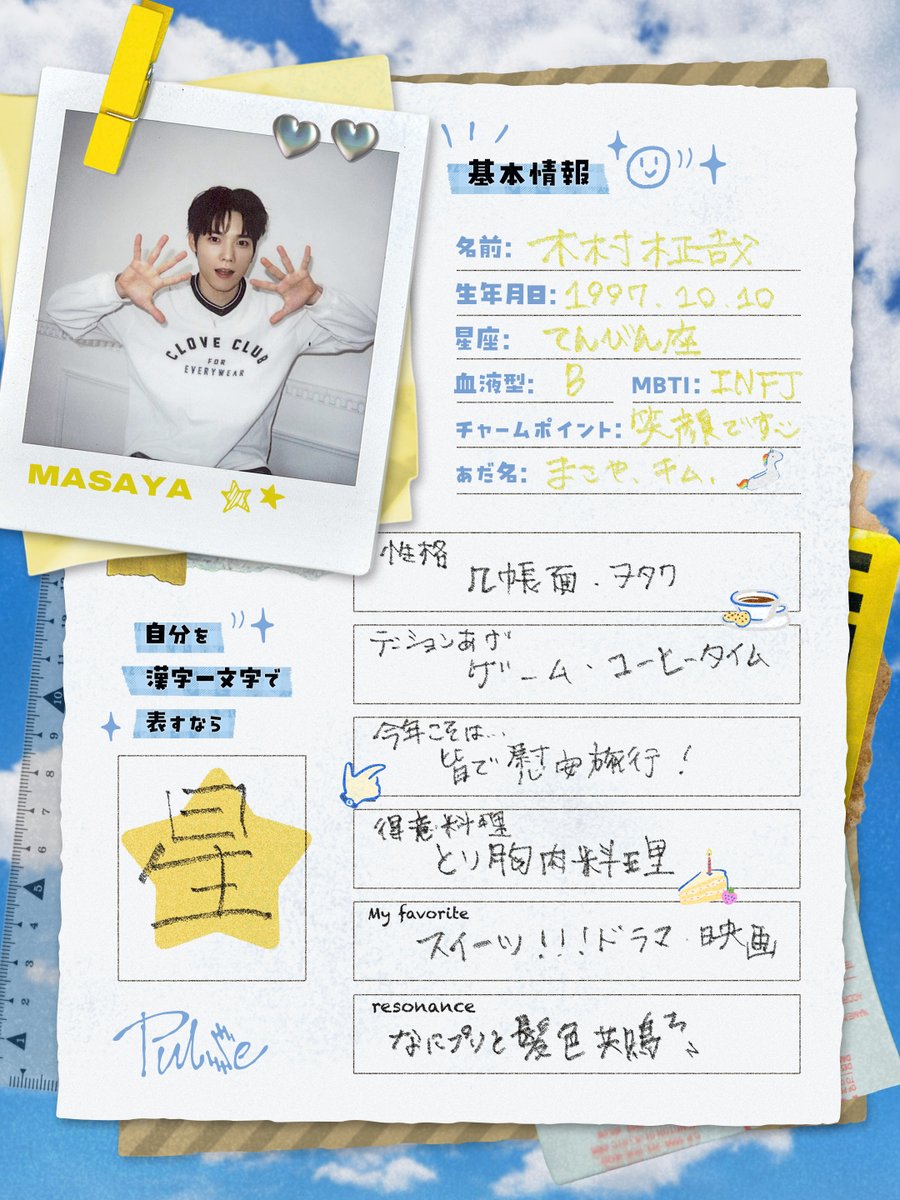 CLOVE CLUB
FOR
EVERYWEAR
MASAYA
基本情報
名前: 木村柾哉
生年月日: 1997.10.10
星座: てんびん座
血液型: B MBTI: INFJ
チャームポイント: 笑顔です
あだ名: まさや、キム、
性格
几帳面・ヲタク
テンションあげ
ゲーム・コーヒータイム
今年こそは...
皆で慰安旅行!
得意料理
とり胸肉料理
My favorite
スイーツ!!!ドラマ・映画
resonance
なにプリと髪色共鳴
自分を
漢字一文字で
表すなら
星
Pulse